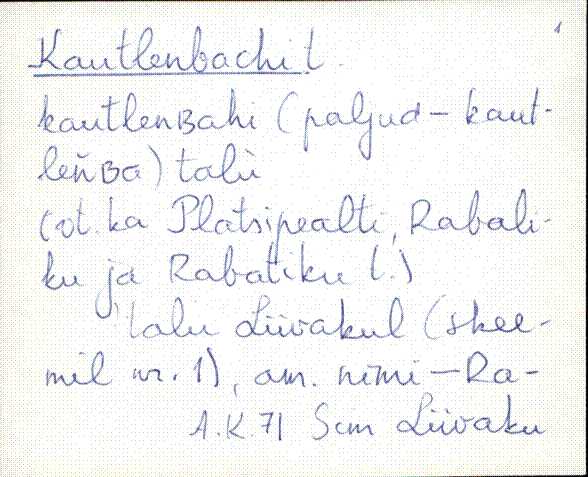 1
Kautlenbachi t.
kautlenBahi (paljud – kaut-
leňBa) talu
(vt. ka Platsipealti, Rabali-
ku ja Rabatiku t.)
talu Liivakul (skee-
mil nr. 1), am. nimi – Ra-
A.K. 71 Sim Liivaku